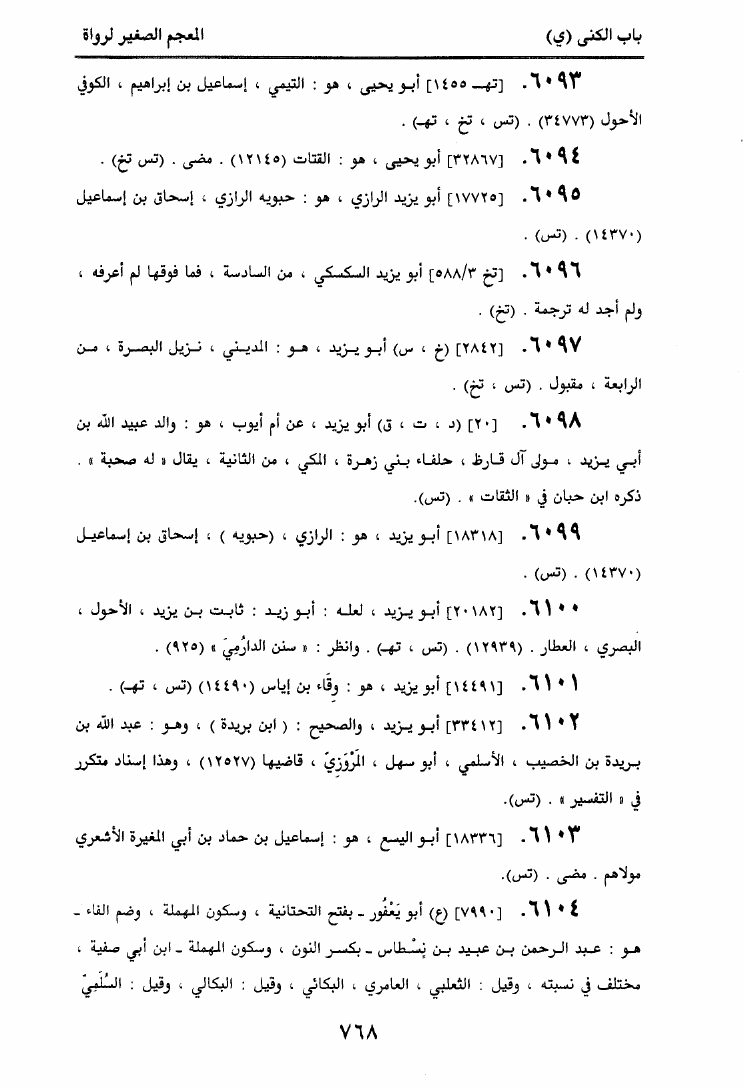 باب الكنى (ي) المعجم الصغير لرواة
٦٠٩٣. [تهـ ١٤٥٥] أبو يحيى ، هو : التيمي ، إسماعيل بن إبراهيم ، الكوفي
الأحول (٣٤٧٧٣) . (تس ، تخ ، تهـ) .
٦٠٩٤. [٣٢٨٦٧] أبو يحيى ، هو : القتات (١٢١٤٥) . مضى . (تس تخ) .
٦٠٩٥. [١٧٧٢٥] أبو يزيد الرازي ، هو : حبويه الرازي ، إسحاق بن إسماعيل
(١٤٣٧٠) . (تس) .
٦٠٩٦. [تخ ٥٨٨/٣] أبو يزيد السكسكي ، من السادسة ، فما فوقها لم أعرفه ،
ولم أجد له ترجمة . (تخ) .
٦٠٩٧. [٢٨٤٢] (خ ، س) أبو يزيد ، هو : المديني ، نزيل البصرة ، من
الرابعة ، مقبول . (تس ، تخ) .
٦٠٩٨. [٢٠] (د ، ت ، ق) أبو يزيد ، عن أم أيوب ، هو : والد عبيد الله بن
أبي يزيد ، مولى آل قارظ ، حلفاء بني زهرة ، المكي ، من الثانية ، يقال « له صحبة » .
ذكره ابن حبان في « الثقات » . (تس).
٦٠٩٩. [١٨٣١٨] أبو يزيد ، هو : الرازي ، (حبويه ) ، إسحاق بن إسماعيل
(١٤٣٧٠) . (تس) .
٦١٠٠. [٢٠١٨٢] أبو يزيد ، لعله : أبو زيد : ثابت بن يزيد ، الأحول ،
البصري ، العطار . (١٢٩٣٩) . (تس ، تهـ) . وانظر : « سنن الدارُمِيّ » (٩٢٥) .
٦١٠١. [١٤٤٩١] أبو يزيد ، هو : وِقَاء بن إياس (١٤٤٩٠) (تس ، تهـ) .
٦١٠٢. [٣٣٤١٢] أبو يزيد ، والصحيح : ( ابن بريدة ) ، وهو : عبد الله بن
بريدة بن الخصيب ، الأسلمي ، أبو سهل ، المَرْوَزِيّ ، قاضيها (١٢٥٢٧) ، وهذا إسناد متكرر
في « التفسير » . (تس).
٦١٠٣. [١٨٣٣٦] أبو اليسع ، هو : إسماعيل بن حماد بن أبي المغيرة الأشعري
مولاهم . مضى . (تس).
٦١٠٤. [٧٩٩٠] (ع) أبو يَعْفُور ـ بفتح التحتانية ، وسكون المهملة ، وضم الفاء ـ
هو : عبد الرحمن بن عبيد بن نِسْطاس ـ بكسر النون ، وسكون المهملة ـ ابن أبي صفية ،
مختلف في نسبته ، وقيل : الثعلبي ، العامري ، البكائي ، وقيل : البكالي ، وقيل : السُلَمِيّ
٧٦٨